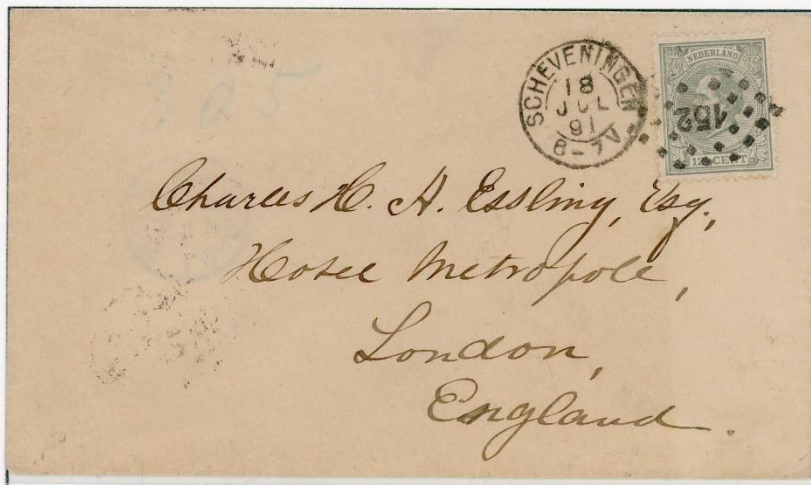 205
SCHEVENINGEN
18
JUL
91
8-7V
NEDERLAND
152
12½ CENT
Charles H. A. Essling, Esq.,
Hotel Metropole,
London,
England.